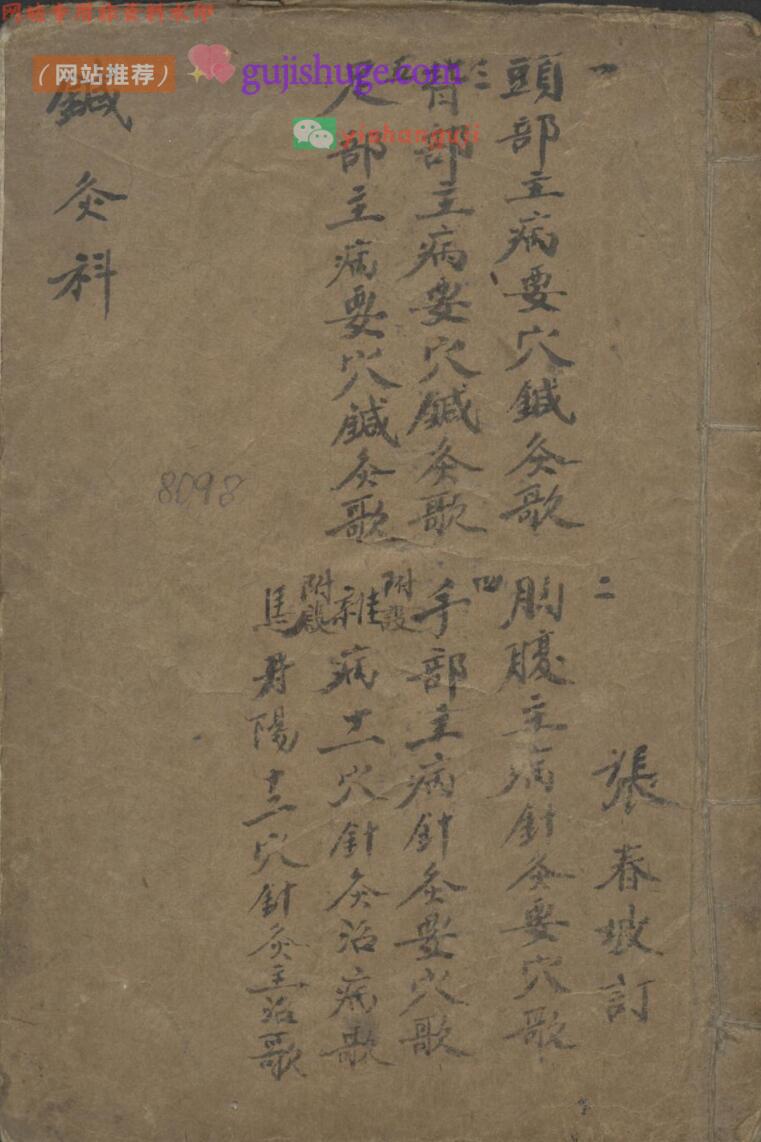 网站专用非资料水印
(网站推荐)
gujishuge.com
yinhanguji
一
頭部主病要穴鍼灸歌
二
胸腹主病針灸要穴歌
張春坡訂
三
背部主病要穴鍼灸歌
四
手部主病針灸要穴歌
五
足部主病要穴鍼灸歌
附設
雜病十一穴針灸治病歌
附設
馬丹陽十二穴針灸主治歌
鍼灸科
8098